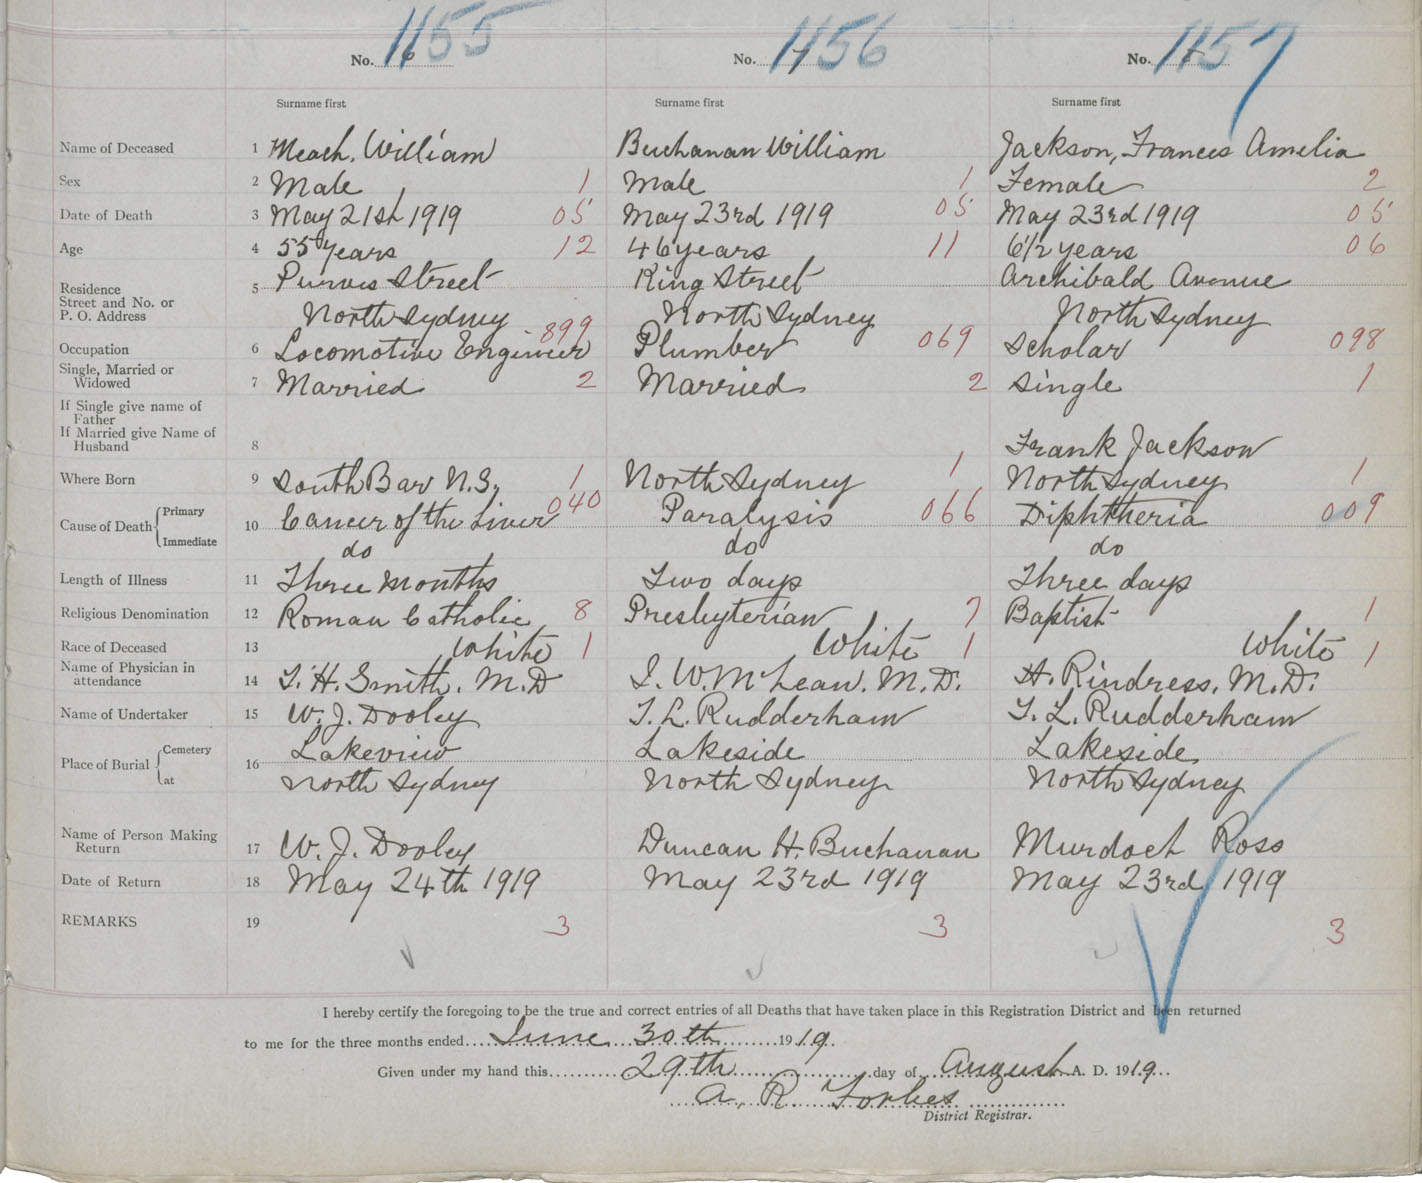 1155 1156 1157
No. 6 No. 7 No.
Surname first Surname first Surname first
Name of Deceased 1 Meach, William Buchanan William Jackson, Frances Amelia
Sex 2 Male 1 Male 1 Female 2
Date of Death 3 May 21st 1919 05 May 23rd 1919 05 May 23rd 1919 05
Age 4 55 years 12 46 years 11 6 1/2 years 06
Residence
Street and No. or
P. O. Address 5 Purves Street King Street Archibald Avenue
North Sydney North Sydney North Sydney
Occupation 6 Locomotive Engineer 899 Plumber 069 Scholar 098
Single, Married or
Widowed 7 Married 2 Married 2 Single 1
If Single give name of
Father
If Married give Name of
Husband 8 Frank Jackson
Where Born 9 South Bar N.S. 1 North Sydney 1 North Sydney 1
Cause of Death Primary
Immediate 10 Cancer of the Liver 040 Paralysis 066 Diphtheria 009
do do do
Length of Illness 11 Three Months Two days Three days
Religious Denomination 12 Roman Catholic 8 Presbyterian 7 Baptist 1
Race of Deceased 13 White 1 White 1 White 1
Name of Physician in
attendance 14 T. H. Smith. M.D J. W. McLean. M.D. H. Rindress. M.D.
Name of Undertaker 15 W. J. Dooley T. L. Rudderham T. L. Rudderham
Place of Burial Cemetery
at 16 Lakeview Lakeside Lakeside
North Sydney North Sydney North Sydney
Name of Person Making
Return 17 W. J. Dooley Duncan H. Buchanan Murdoch Ross
Date of Return 18 May 24th 1919 May 23rd 1919 May 23rd 1919
REMARKS 19 3 3 3
I hereby certify the foregoing to be the true and correct entries of all Deaths that have taken place in this Registration District and been returned
to me for the three months ended June 30th 1919.
Given under my hand this 29th day of August A. D. 1919
A. R. Forbes
District Registrar.